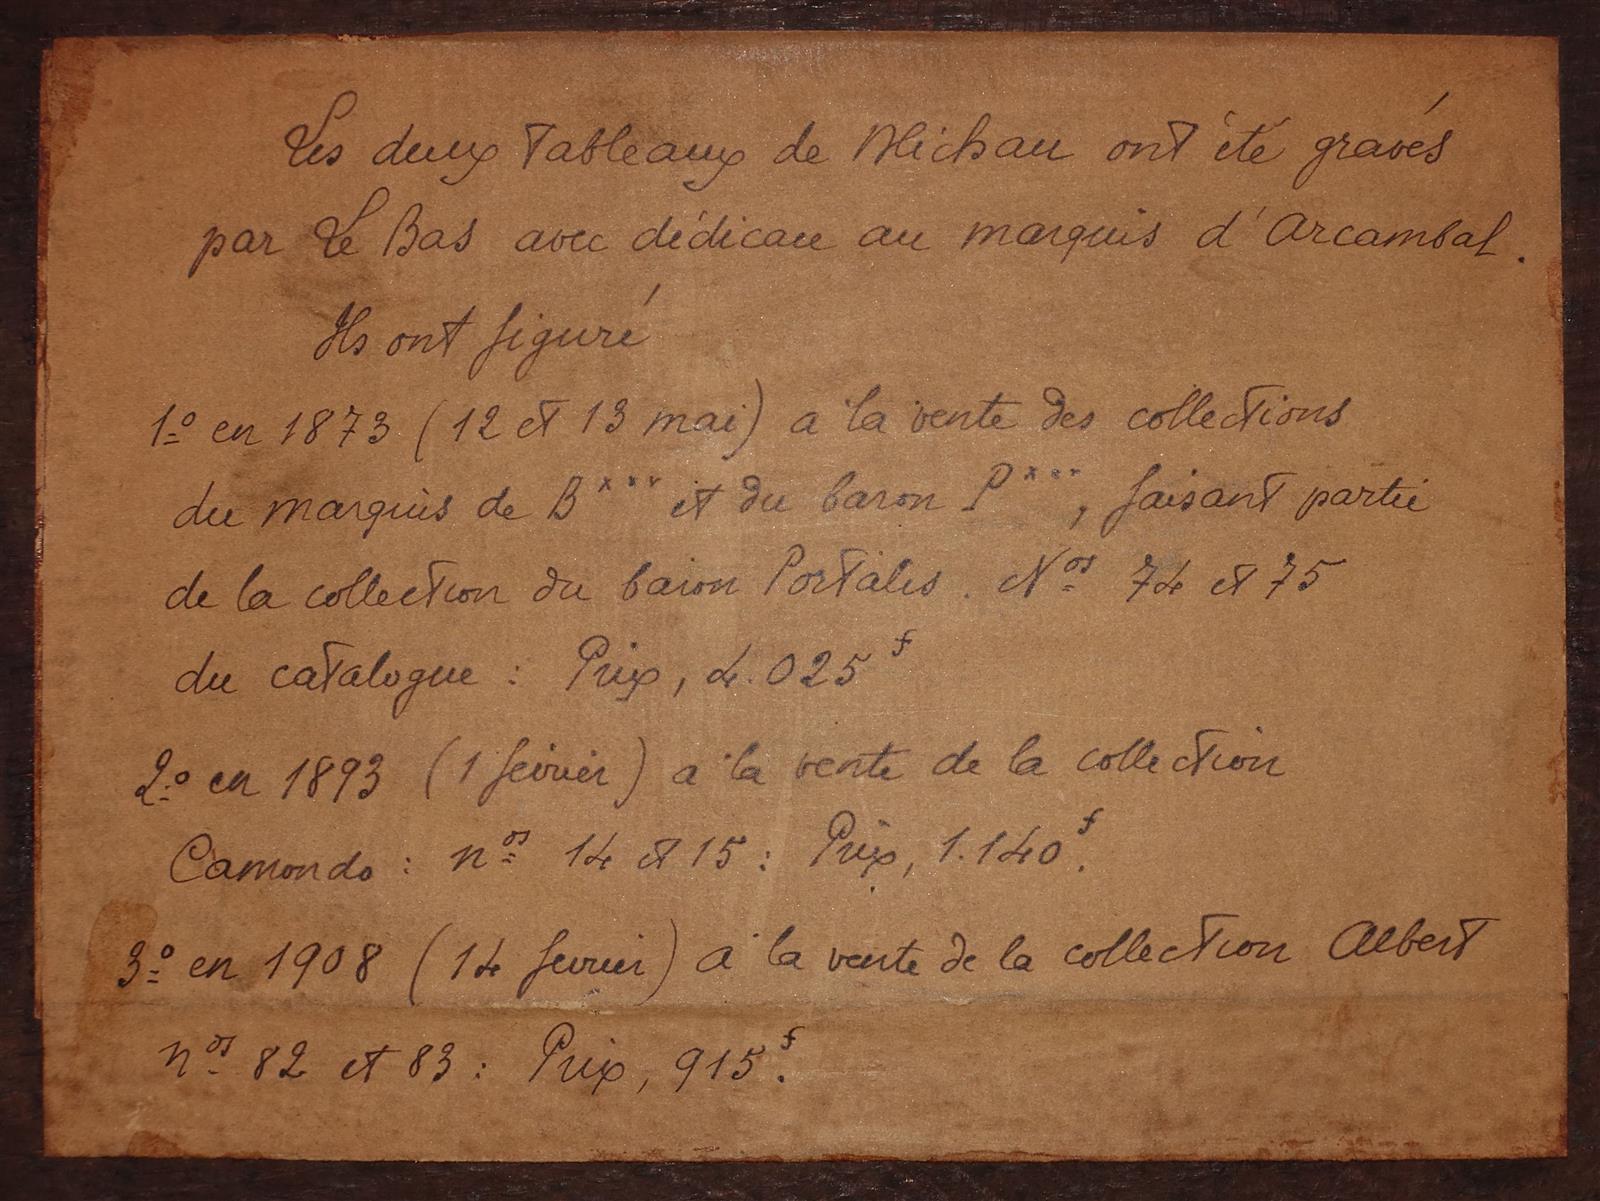 Les deux Tableaux de Michau ont été gravés
par Le Bas avec dédicace au marquis d'Arcambal.
Ils ont figuré
1º en 1873 (12 et 13 mai) à la vente des collections
du marquis de B*** et du baron P***, faisant partie
de la collection du baron Portalis. Nos 74 et 75
du catalogue : Prix, 4.025f
2º en 1893 (1 février) à la vente de la collection
Camondo : nos 14 et 15 : Prix, 1.140f.
3º en 1908 (14 fevrier) à la vente de la collection Albert
nos 82 et 83 : Prix, 915f.